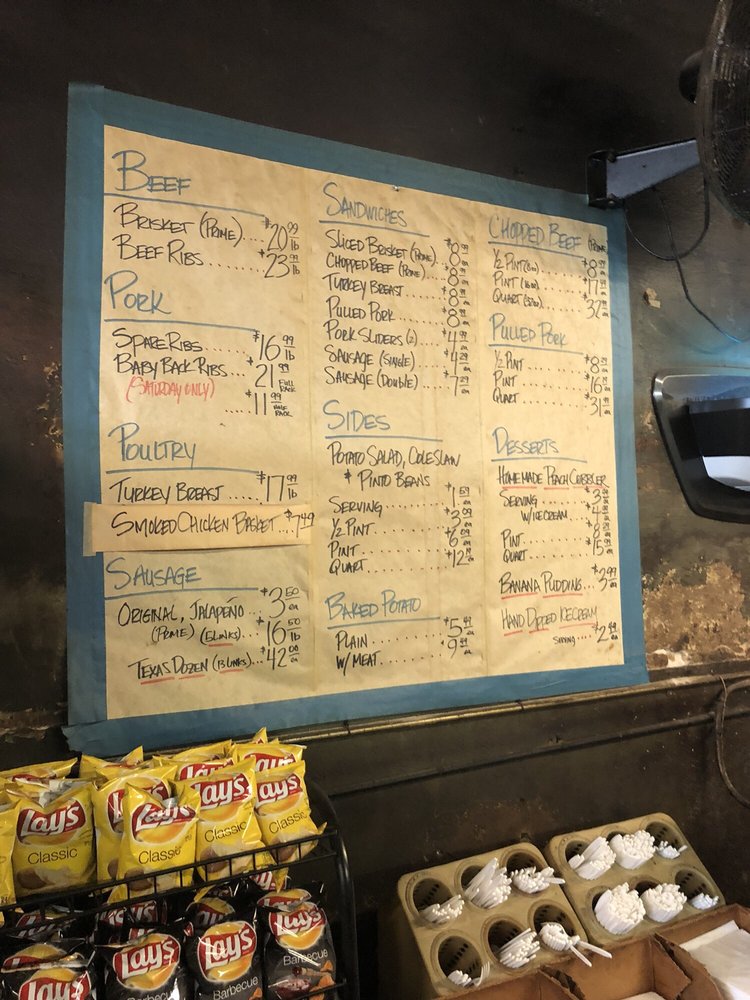 BEEF
BRISKET (PRIME)... $20.99 lb
BEEF RIBS....... $23.99 lb
PORK
SPARE RIBS...... $16.99 lb
BABY BACK RIBS... $21.99 FULL RACK
(SATURDAY ONLY)
..... $11.99 HALF RACK
POULTRY
TURKEY BREAST..... $17.99 lb
SMOKED CHICKEN BASKET...$7.49
SAUSAGE
ORIGINAL, JALAPEÑO... $3.50 ea
(5 LINKS)... $16.50 lb
TEXAS DOZEN (13 LINKS)... $42.00 ea
SANDWICHES
SLICED BRISKET (PRIME). $8.99 ea
CHOPPED BEEF (PRIME).. $8.99 ea
TURKEY BREAST..... $8.99 ea
PULLED PORK ...... $8.99 ea
PORK SLIDERS (2) .... $4.99 ea
SAUSAGE (SINGLE) .... $4.29 ea
SAUSAGE (DOUBLE).... $7.29 ea
SIDES
POTATO SALAD, COLESLAW
& PINTO BEANS
SERVING ........ $1.59 ea
1/2 PINT ........ $3.09 ea
PINT ........ $6.09 ea
QUART ........ $12.19 ea
BAKED POTATO
PLAIN ........ $5.49 ea
W/ MEAT ........ $9.49 ea
CHOPPED BEEF (PRIME
1/2 PINT (8oz) ..... $8.99 ea
PINT (16oz) ..... $17
QUART (32oz) .... $32
PULLED PORK
1/2 PINT ...... $8
PINT ...... $16
QUART ...... $31
DESSERTS
HOMEMADE PEACH COBBLER
SERVING ..... $3
W/ ICE CREAM .... $4
PINT ...... $8
QUART ..... $15
BANANA PUDDING... $3.99 ea
HAND DIPPED ICE CREAM
SERVING... $2.49 ea
Lay's Classic
Lay's Classic
Lay's
Lay's Classic
Lay's
Lay's
Lay's Barbecue
Lay's Barbecue
Lay's Barbecue